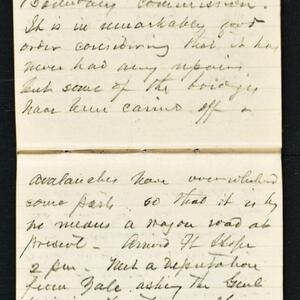 Boundary Commission.
It is in remarkably good
order considering that it has
never had any repairs
but some of the bridges
have been carried off &
avalanches have overwhelmed
some parts so that it is by
no means a wagon road at
present - Arrived Ft Hope
2 pm. Met a Deputation
from Yale asking the Govt